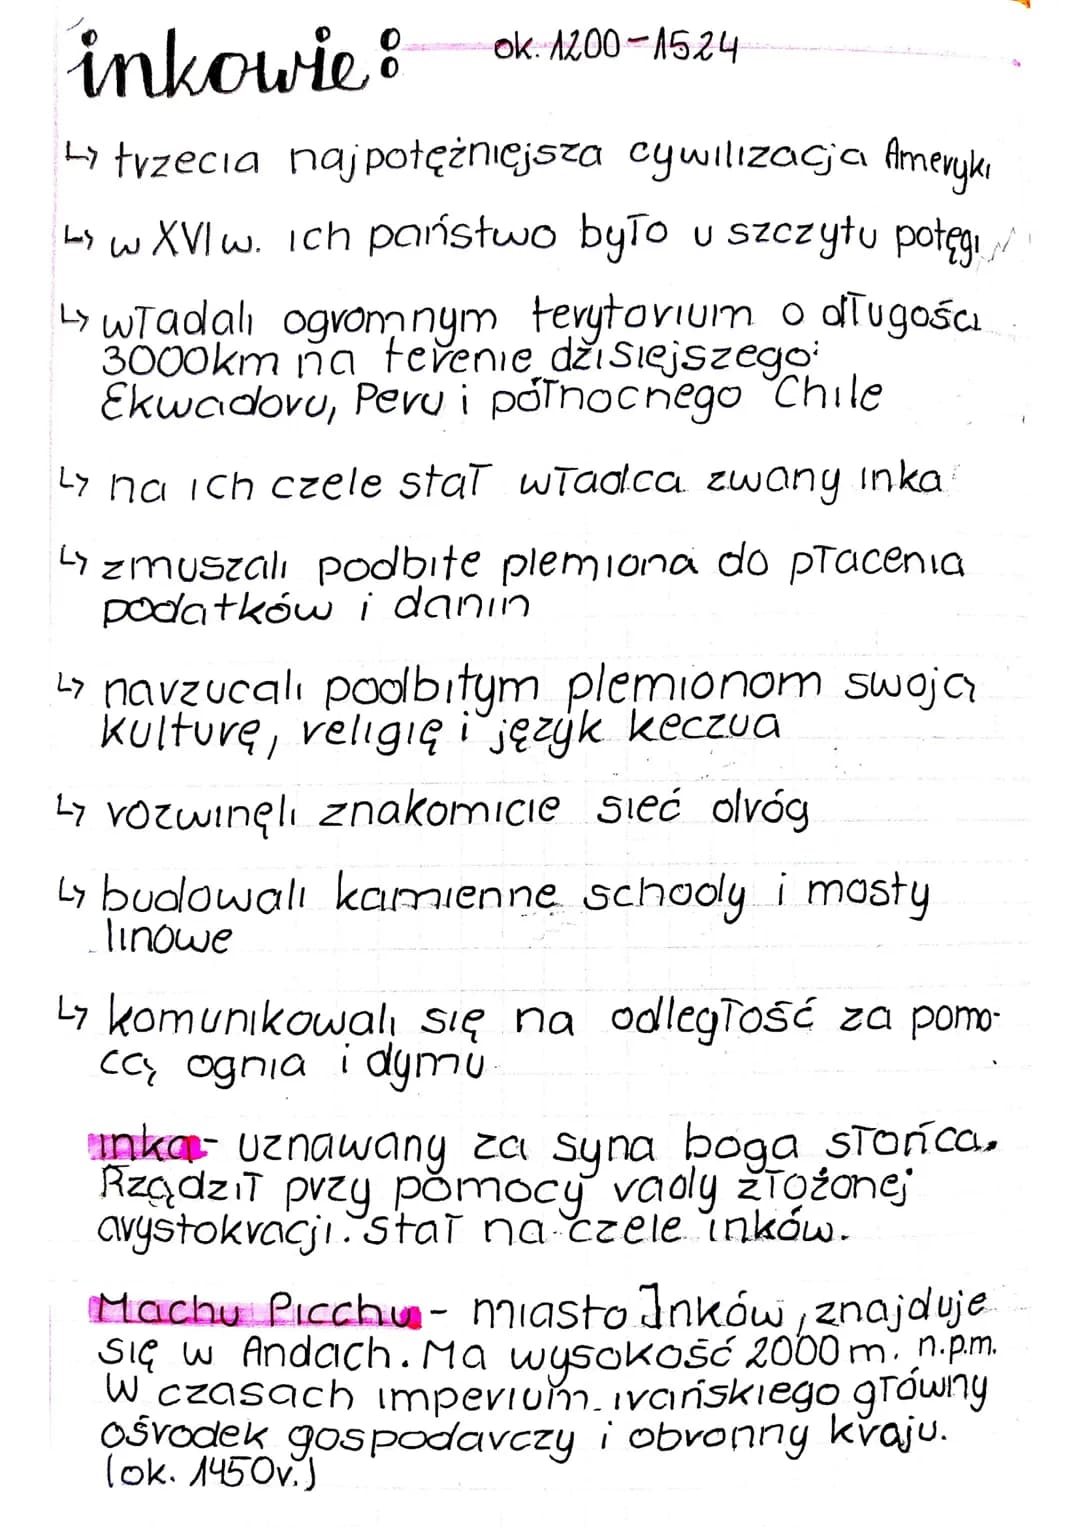 inkowie: ok. 1200-1524
↳ trzecia najpotężniejsza cywilizacja Ameryki
↳ w XVI w. ich państwo było u szczytu potęgi
↳ władali ogromnym terytorium o długości
3000km na terenie dzisiejszego:
Ekwadoru, Peru i północnego Chile
↳ na ich czele stał władca zwany inka
↳ zmuszali podbite plemiona do płacenia
podatków i danin
↳ narzucali podbitym plemionom swoją
kulturę, religię i język keczua
↳ rozwinęli znakomicie sieć dróg
↳ budowali kamienne schody i mosty
linowe
↳ komunikowali się na odległość za pomo-
cą ognia i dymu
inka - uznawany za syna boga słońca.
Rządził przy pomocy rady złożonej
arystokracji. stał na czele inków.
Machu Picchu - miasto Inków, znajduje
się w Andach. Ma wysokość 2000 m. n.p.m.
W czasach imperium irańskiego główny
ośrodek gospodarczy i obronny kraju.
(ok. 1450r.)